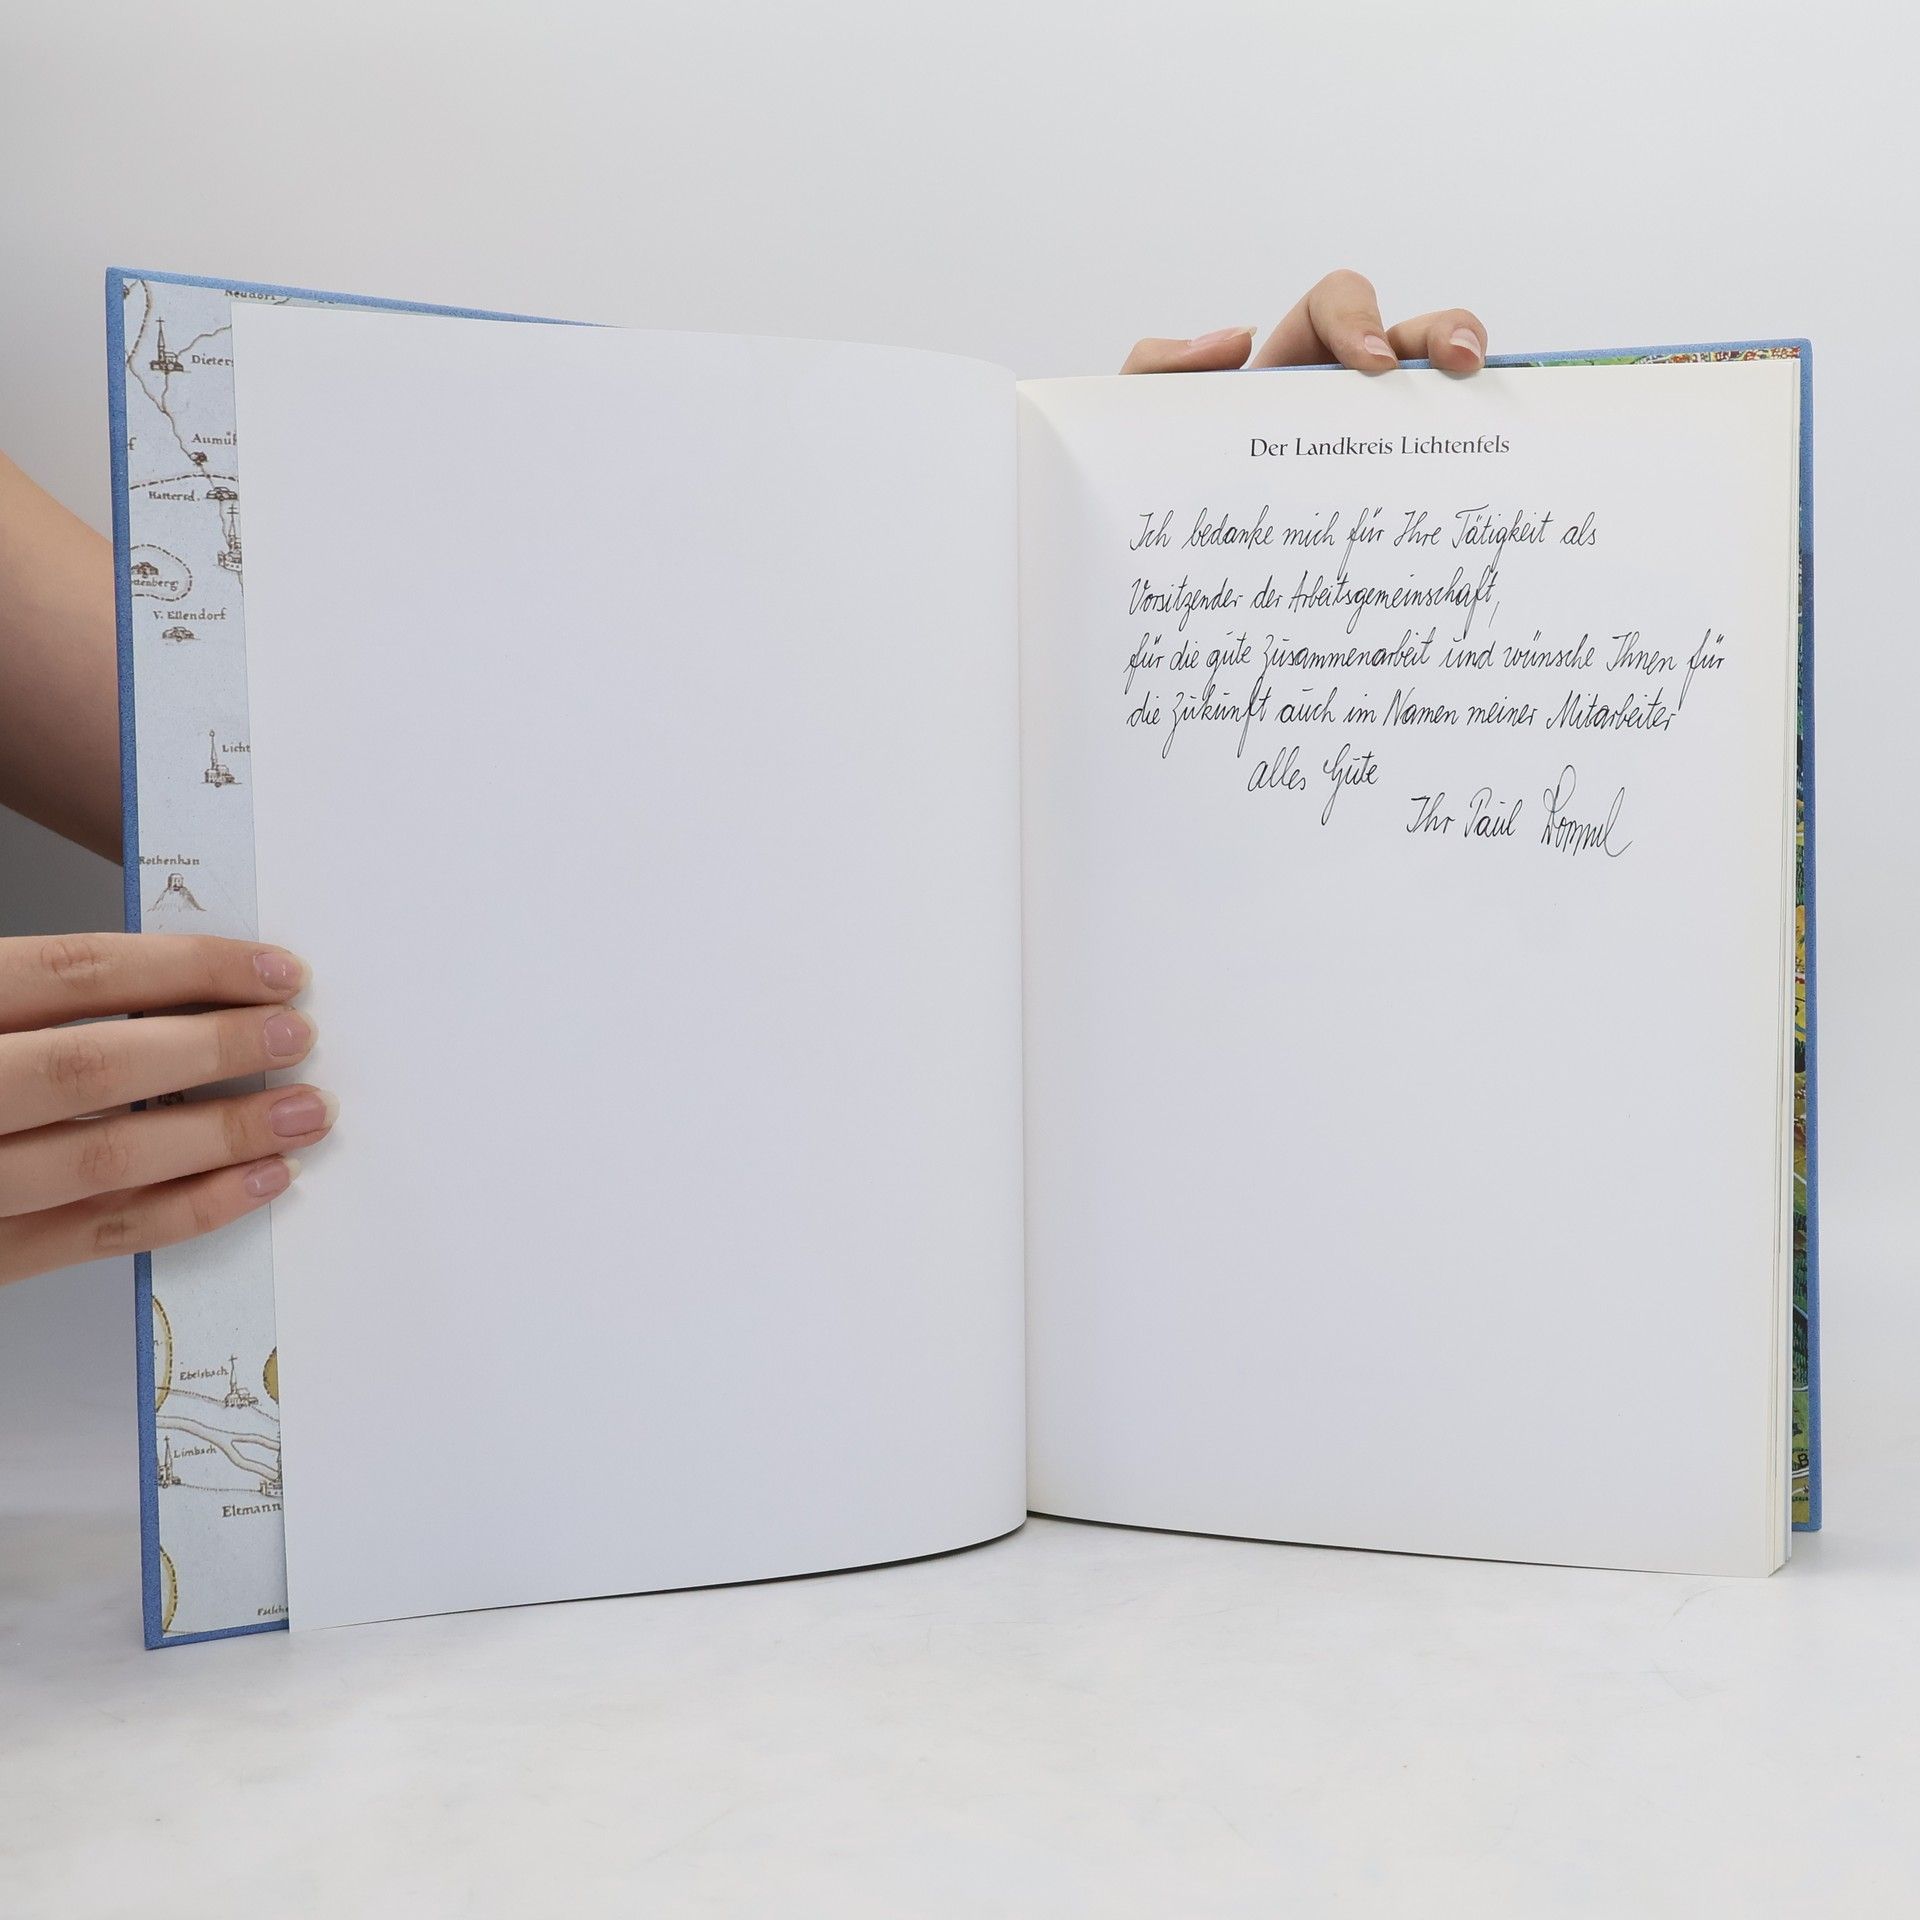 Neudorf
Dieters
Aumüh
Hattersd.
V. Ellendorf
Licht
Rothenhan
Ebelsbach
Limbach
Eltmann
Der Landkreis Lichtenfels
Ich bedanke mich für Ihre Tätigkeit als
Vorsitzender der Arbeitsgemeinschaft,
für die gute Zusammenarbeit und wünsche Ihnen für
die Zukunft auch im Namen meiner Mitarbeiter
alles Gute
Ihr Paul